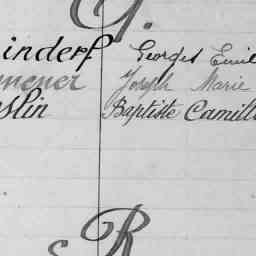 G.
inderf Georges Emil
mener Joseph Marie
slin Baptiste Camill
R